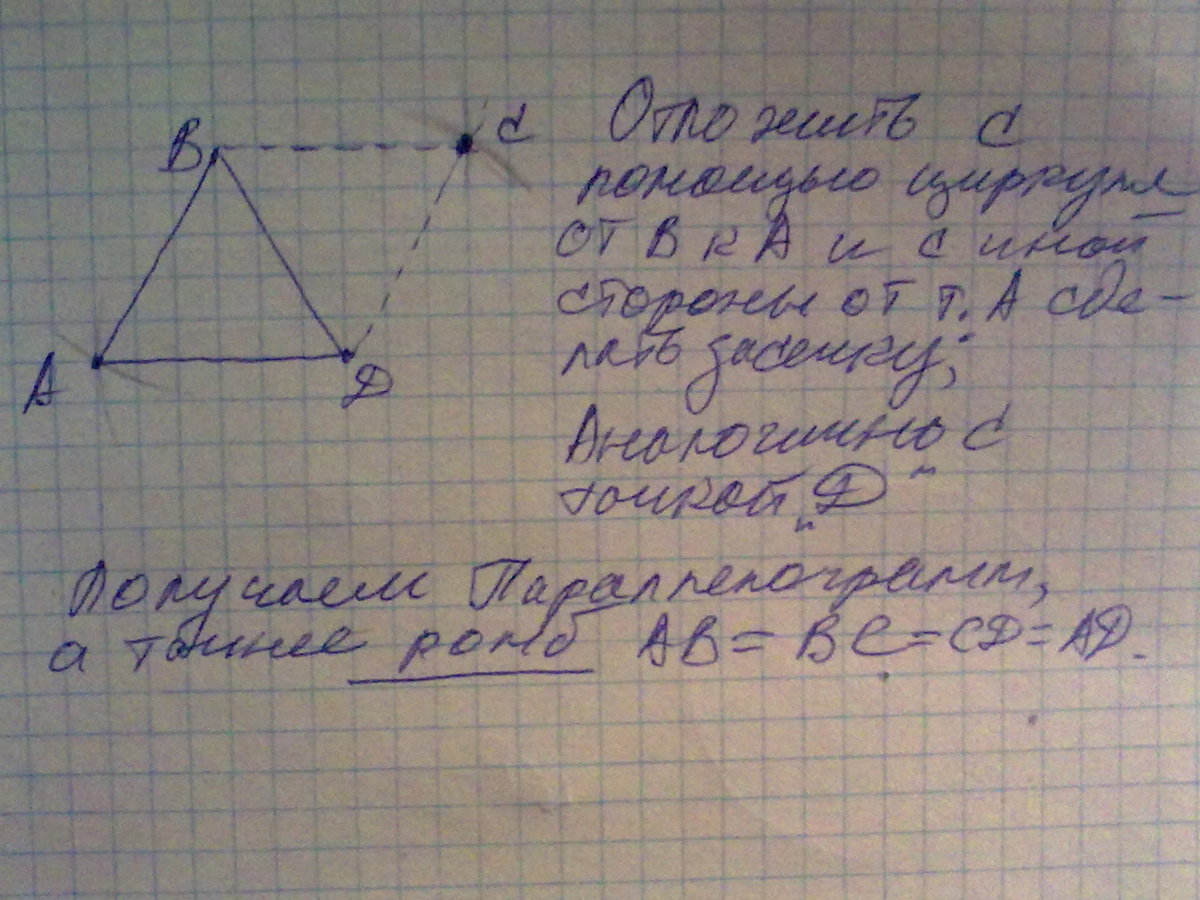 B
C
A
D
Отложить с
помощью циркуля
от B к A и с иной
стороны от т. A сде-
лать засечку;
Аналогично с
точкой „D“
Получаем Параллелограмм,
а точнее ромб AB = BC = CD = AD.